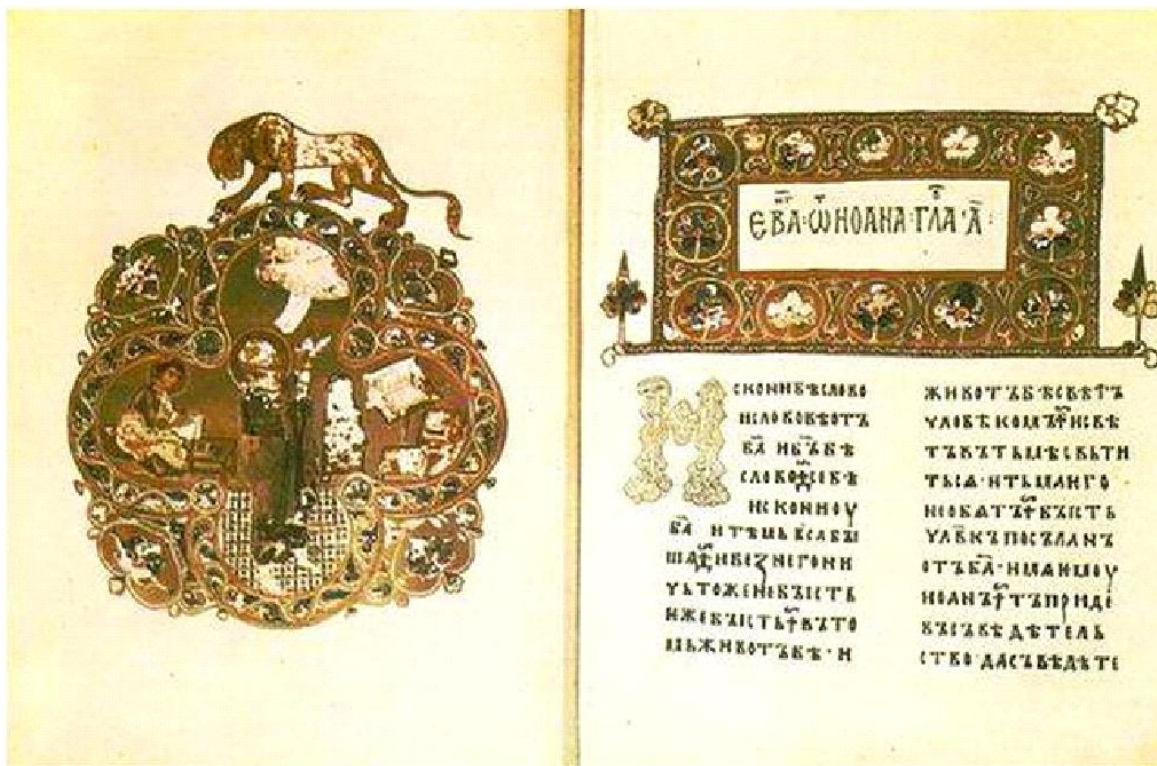 ЕВА҃·Ѿ ИОАНА·ГЛА·А҃·
ИСКОНИБѢСЛОВО
ИСЛОВОБѢОТЪ
БА҃ ИБЪ҃БѢ
СЛОВО·СЕБѢ
ИСКОНИОУ
БА҃ ИТѢМЬВСАБꙐ
ШѦ·ИБЕЗНЕГОНИ
ЧЬТОЖЕНЕБꙐСТЬ
ИЖЕБꙐСТЬ·ВЪТО
МЬЖИВОТЪБѢ·И
ЖИВОТЪБѢСВѢТЪ
ЧЛОВѢКОМЪ·ИСВѢ
ТЪВЪТЬМѢСВЬТИ
ТЬСѦ·ИТЬМАѤГО
НЕОБѦТЪ·БꙐСТЬ
ЧЛВ҃КЪПОСЪЛАНЪ
ОТЪБА҃·ИМѦѤМОУ
ИОАНЪ·ТЪПРИДЕ
ВЪСЪВѢДѢТЕЛЬ
СТВО·ДАСЪВѢДѢТЕ